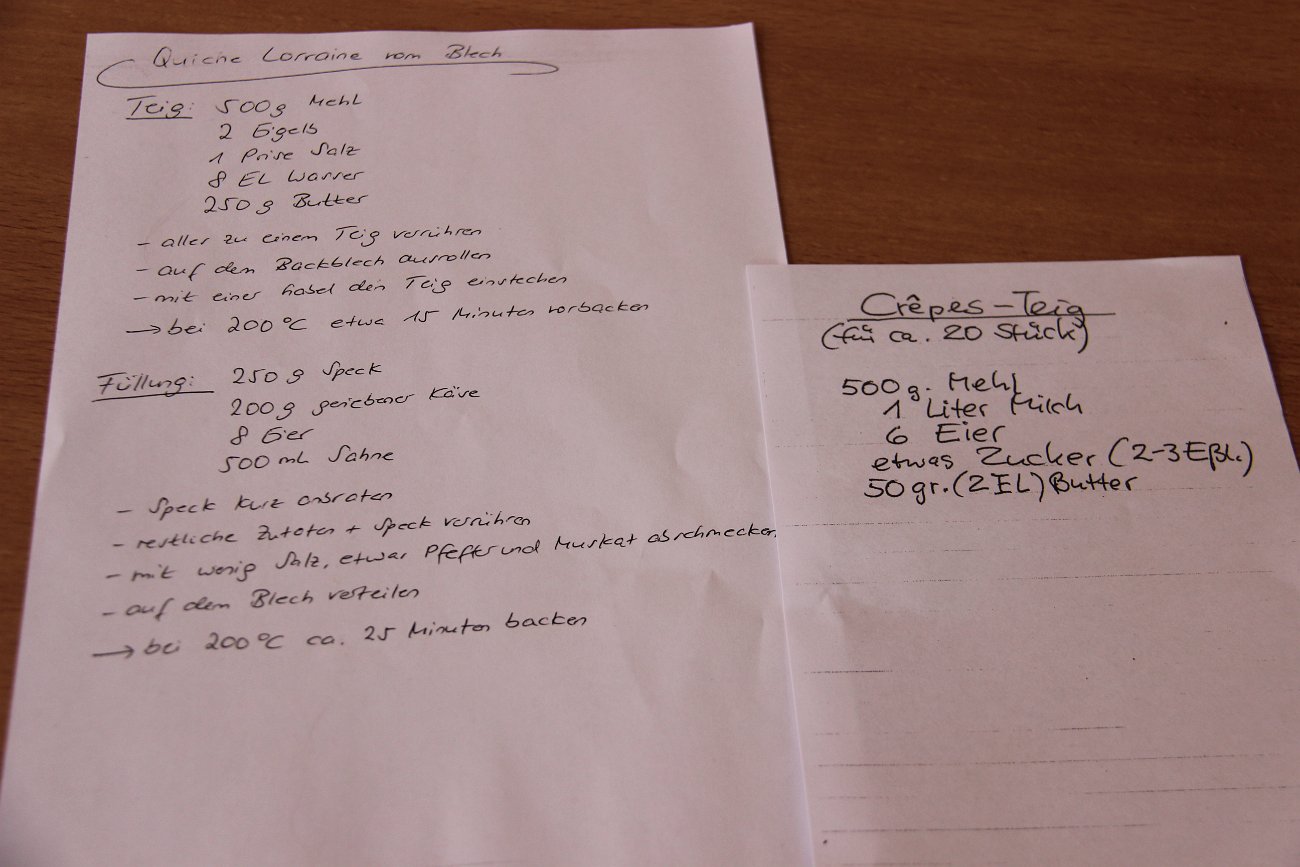 Quiche Lorraine vom Blech
Teig: 500g Mehl
2 Eigelb
1 Prise Salz
8 EL Wasser
250g Butter
- alles zu einem Teig verrühren
- auf dem Backblech ausrollen
- mit einer Gabel den Teig einstechen
→ bei 200°C etwa 15 Minuten vorbacken
Füllung: 250 g Speck
200g geriebener Käse
8 Eier
500 ml Sahne
- Speck kurz anbraten
- restliche Zutaten + Speck verrühren
- mit wenig Salz, etwas Pfeffer und Muskat abschmecken
- auf dem Blech verteilen
→ bei 200°C ca. 25 Minuten backen
Crêpes-Teig
(für ca. 20 Stück)
500g. Mehl
1 Liter Milch
6 Eier
etwas Zucker (2-3 Eßl.)
50 gr. (2 EL) Butter